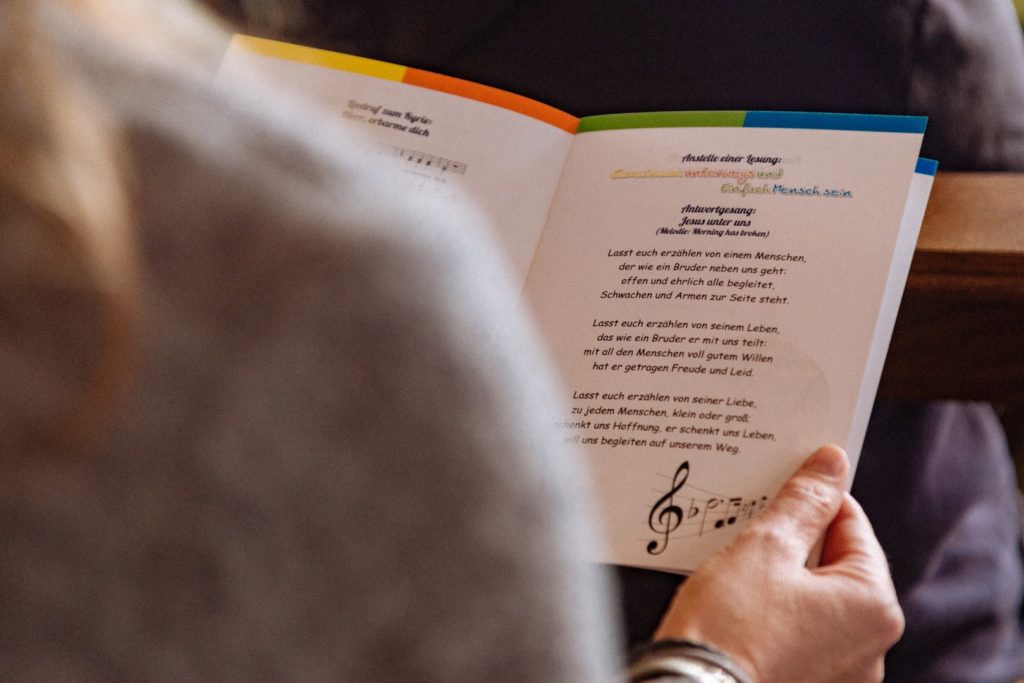 Liedruf zum Kyrie:
Herr, erbarme dich
Anstelle einer Lesung:
unterwegs und
Einfach Mensch sein
Antwortgesang:
Jesus unter uns
(Melodie: Morning has broken)
Lasst euch erzählen von einem Menschen,
der wie ein Bruder neben uns geht:
offen und ehrlich alle begleitet,
Schwachen und Armen zur Seite steht.
Lasst euch erzählen von seinem Leben,
das wie ein Bruder er mit uns teilt:
mit all den Menschen voll gutem Willen
hat er getragen Freude und Leid.
Lasst euch erzählen von seiner Liebe,
zu jedem Menschen, klein oder groß:
schenkt uns Hoffnung, er schenkt uns Leben,
will uns begleiten auf unserem Weg.